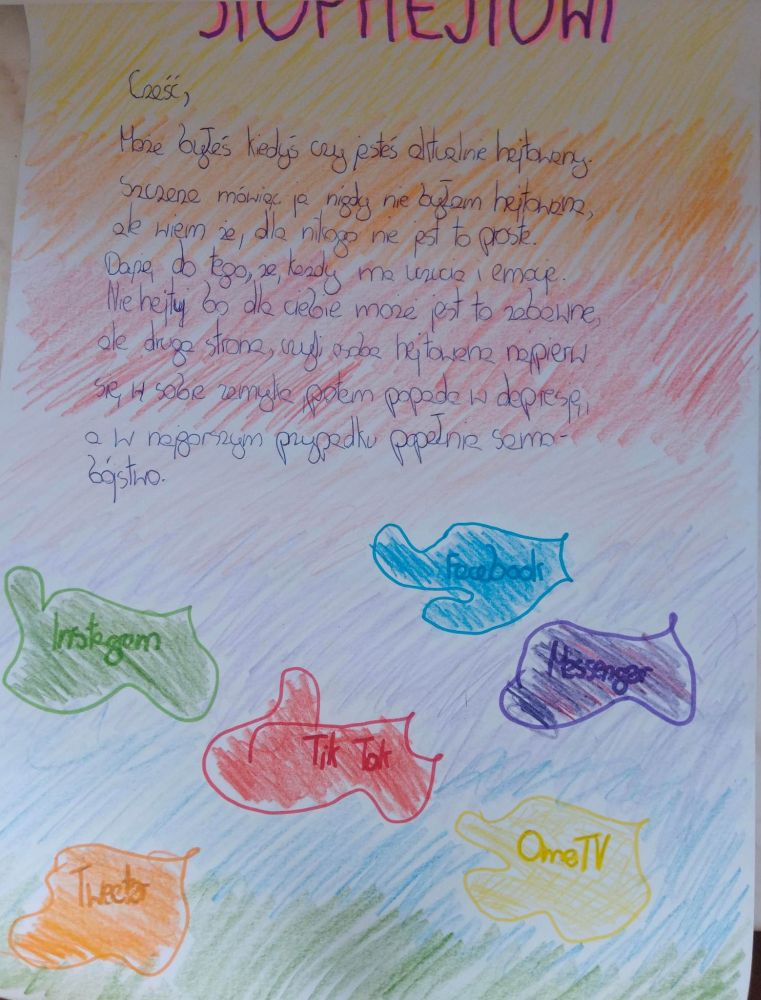 STOP HEJTOWI
Cześć,
Może byłeś kiedyś czy jesteś aktualnie hejtowany.
Szczerze mówiąc ja nigdy nie byłam hejtowana,
ale wiem że, dla nikogo nie jest to proste.
Dążę do tego, że, każdy ma uczucia i emocje.
Nie hejtuj bo dla ciebie może jest to zabawne,
ale druga strona, czyli osoba hejtowana najpierw
się, w sobie zamyka potem popada w depresję,
a w najgorszym przypadku popełnia samo-
bójstwo.
Facebook
Instagram
Messenger
Tik Tok
OmeTV
Tweeter